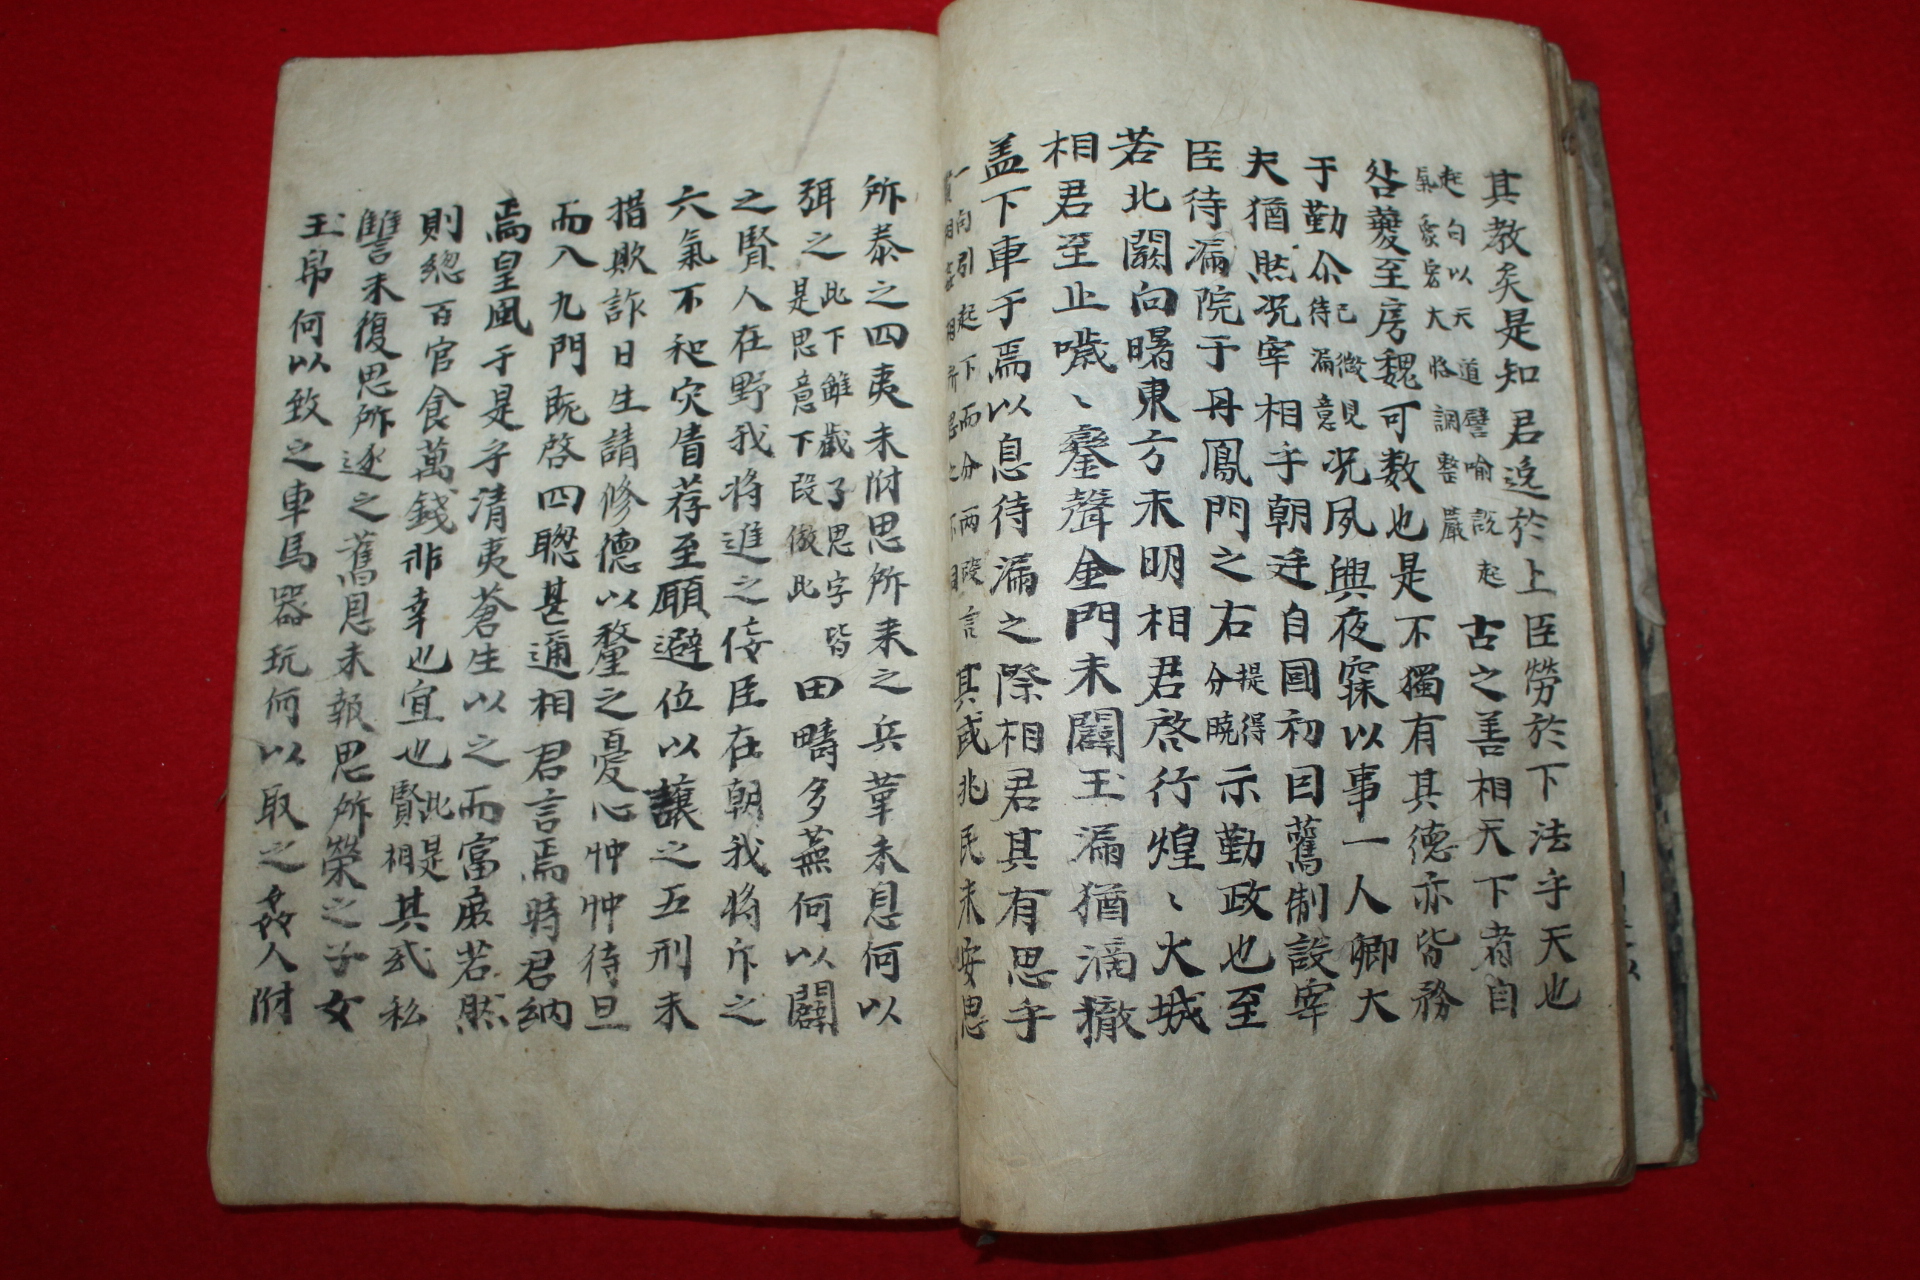 其教矣是知君逸於上臣勞於下法乎天也
起句以天道譬喻說起
氣象宏大格調整嚴
古之善相天下者自
咎夔至房魏可数也是不獨有其德亦皆務
于勤尒
已微見
待漏意
况夙興夜寐以事一人卿大
夫猶然况宰相乎朝廷自國初因舊制設宰
臣待漏院于丹鳳門之右
提得
分曉
示勤政也至
若北闕向曙東方未明相君啓行煌〻火城
相君至止噦〻鑾聲金門未闢玉漏猶滴撤
盖下車于焉以息待漏之際相君其有思乎
一向引起下而分兩段言
其或兆民未安思
所泰之四夷未附思所来之兵革未息何以
弭之
此下雖歲了思字皆
是思意下段倣此
田疇多蕪何以闢
之賢人在野我将進之侫臣在朝我将斥之
六氣不和灾眚荐至願避位以讓之五刑未
措欺詐日生請修德以釐之憂心忡忡待旦
而入九門既啓四聰甚邇相君言焉時君納
焉皇風于是乎清夷蒼生以之而富庶若然
則総百官食萬錢非幸也宜也
此是
賢相
其或私
讐未復思所逐之舊恩未報思所榮之子女
玉帛何以致之車馬器玩何以取之姦人附